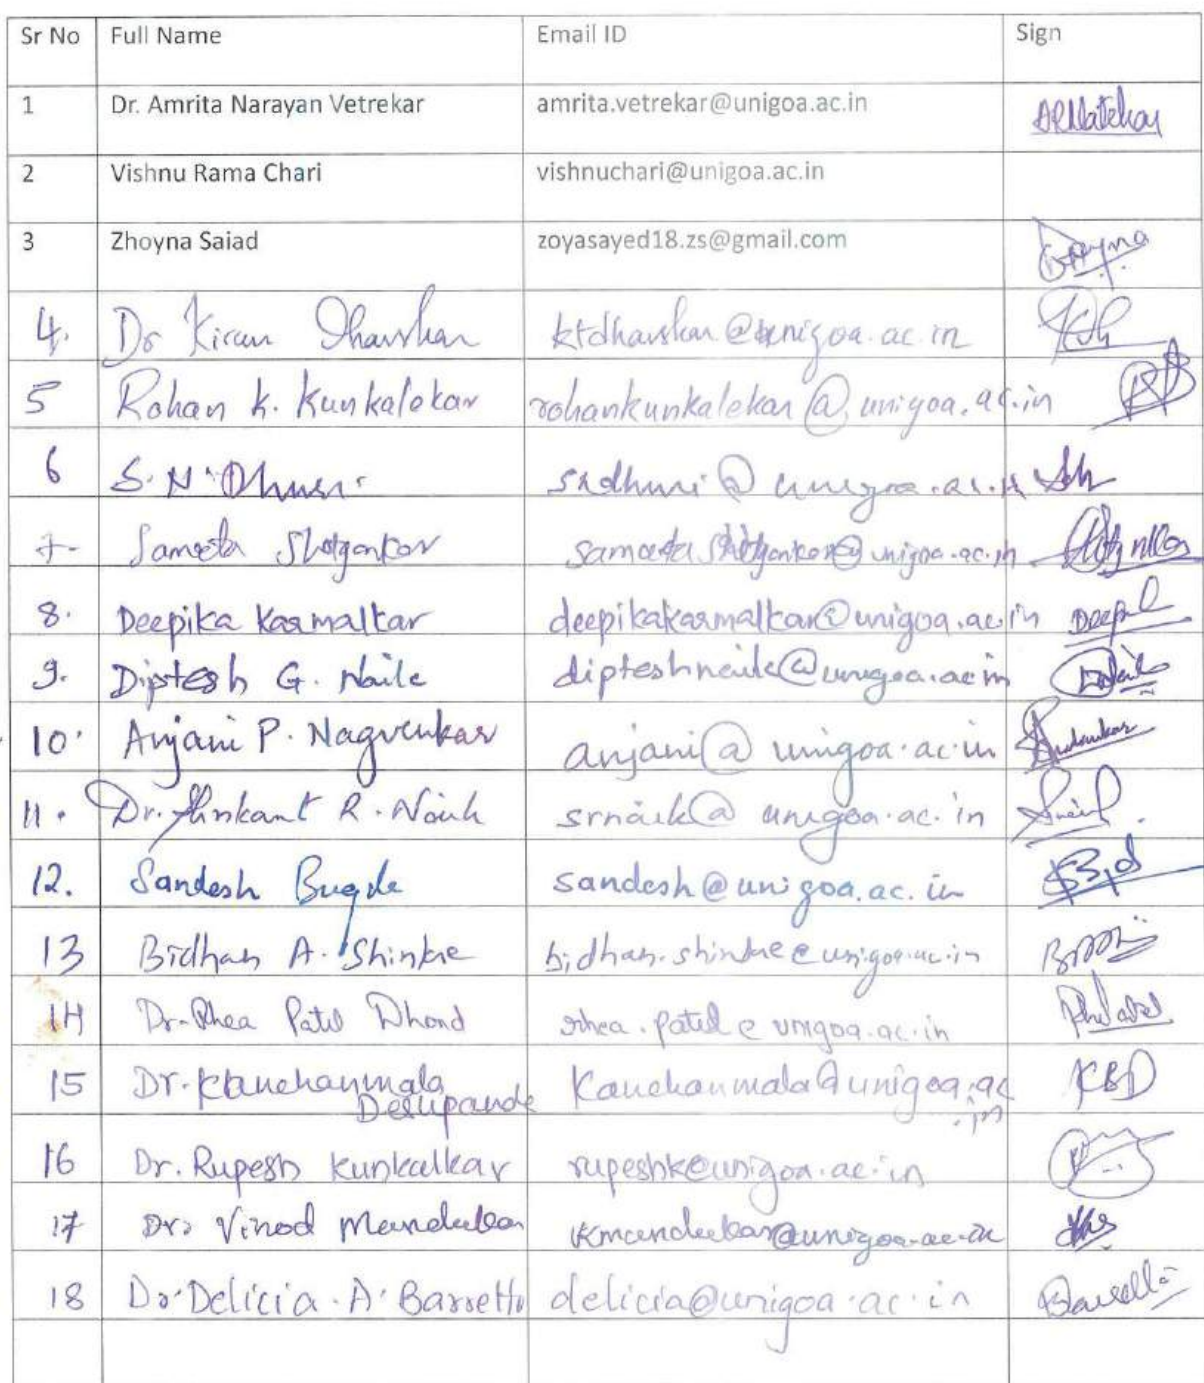 Sr No Full Name Email ID Sign
1 Dr. Amrita Narayan Vetrekar amrita.vetrekar@unigoa.ac.in
2 Vishnu Rama Chari vishnuchari@unigoa.ac.in
3 Zhoyna Saiad zoyasayed18.zs@gmail.com
4. Dr Kiran Dharskar ktdharskar@unigoa.ac.in
5 Rohan K. Kunkalekar rohankunkalekar@unigoa.ac.in
6 S. N. Dhuri sndhuri@unigoa.ac.in
7- Sameeta
8. Deepika Karmalkar deepikakarmalkar@unigoa.ac.in Deepul
9. Diptesh G. Naik dipteshnaik@unigoa.ac.in
10. Anjani P. Nagvenkar anjani@unigoa.ac.in
11. Dr. Shrikant R. Naik srnaik@unigoa.ac.in
12. Sandesh Bugde sandesh@unigoa.ac.in
13 Bidhan A. Shinkre bidhan.shinkre@unigoa.ac.in
14 Dr. Rhea Patil Dhond rhea.patil@unigoa.ac.in
15 Dr. Kanchanmala kanchanmala@unigoa.ac
Deshpande .in KBD
16 Dr. Rupesh Kunkalkar rupeshk@unigoa.ac.in
17 Dr. Vinod Mandrekar
18 Dr. Delicia A. Barretto delicia@unigoa.ac.in